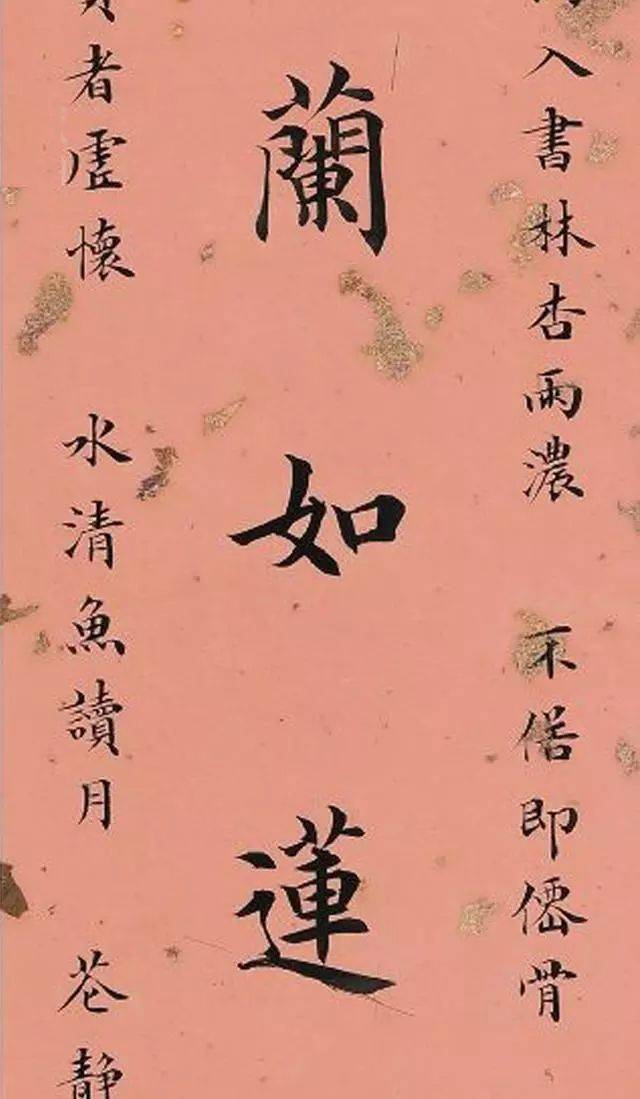 入書林杏雨濃 不俗即僊骨
蘭如蓮
者虛懷 水清魚讀月 花静